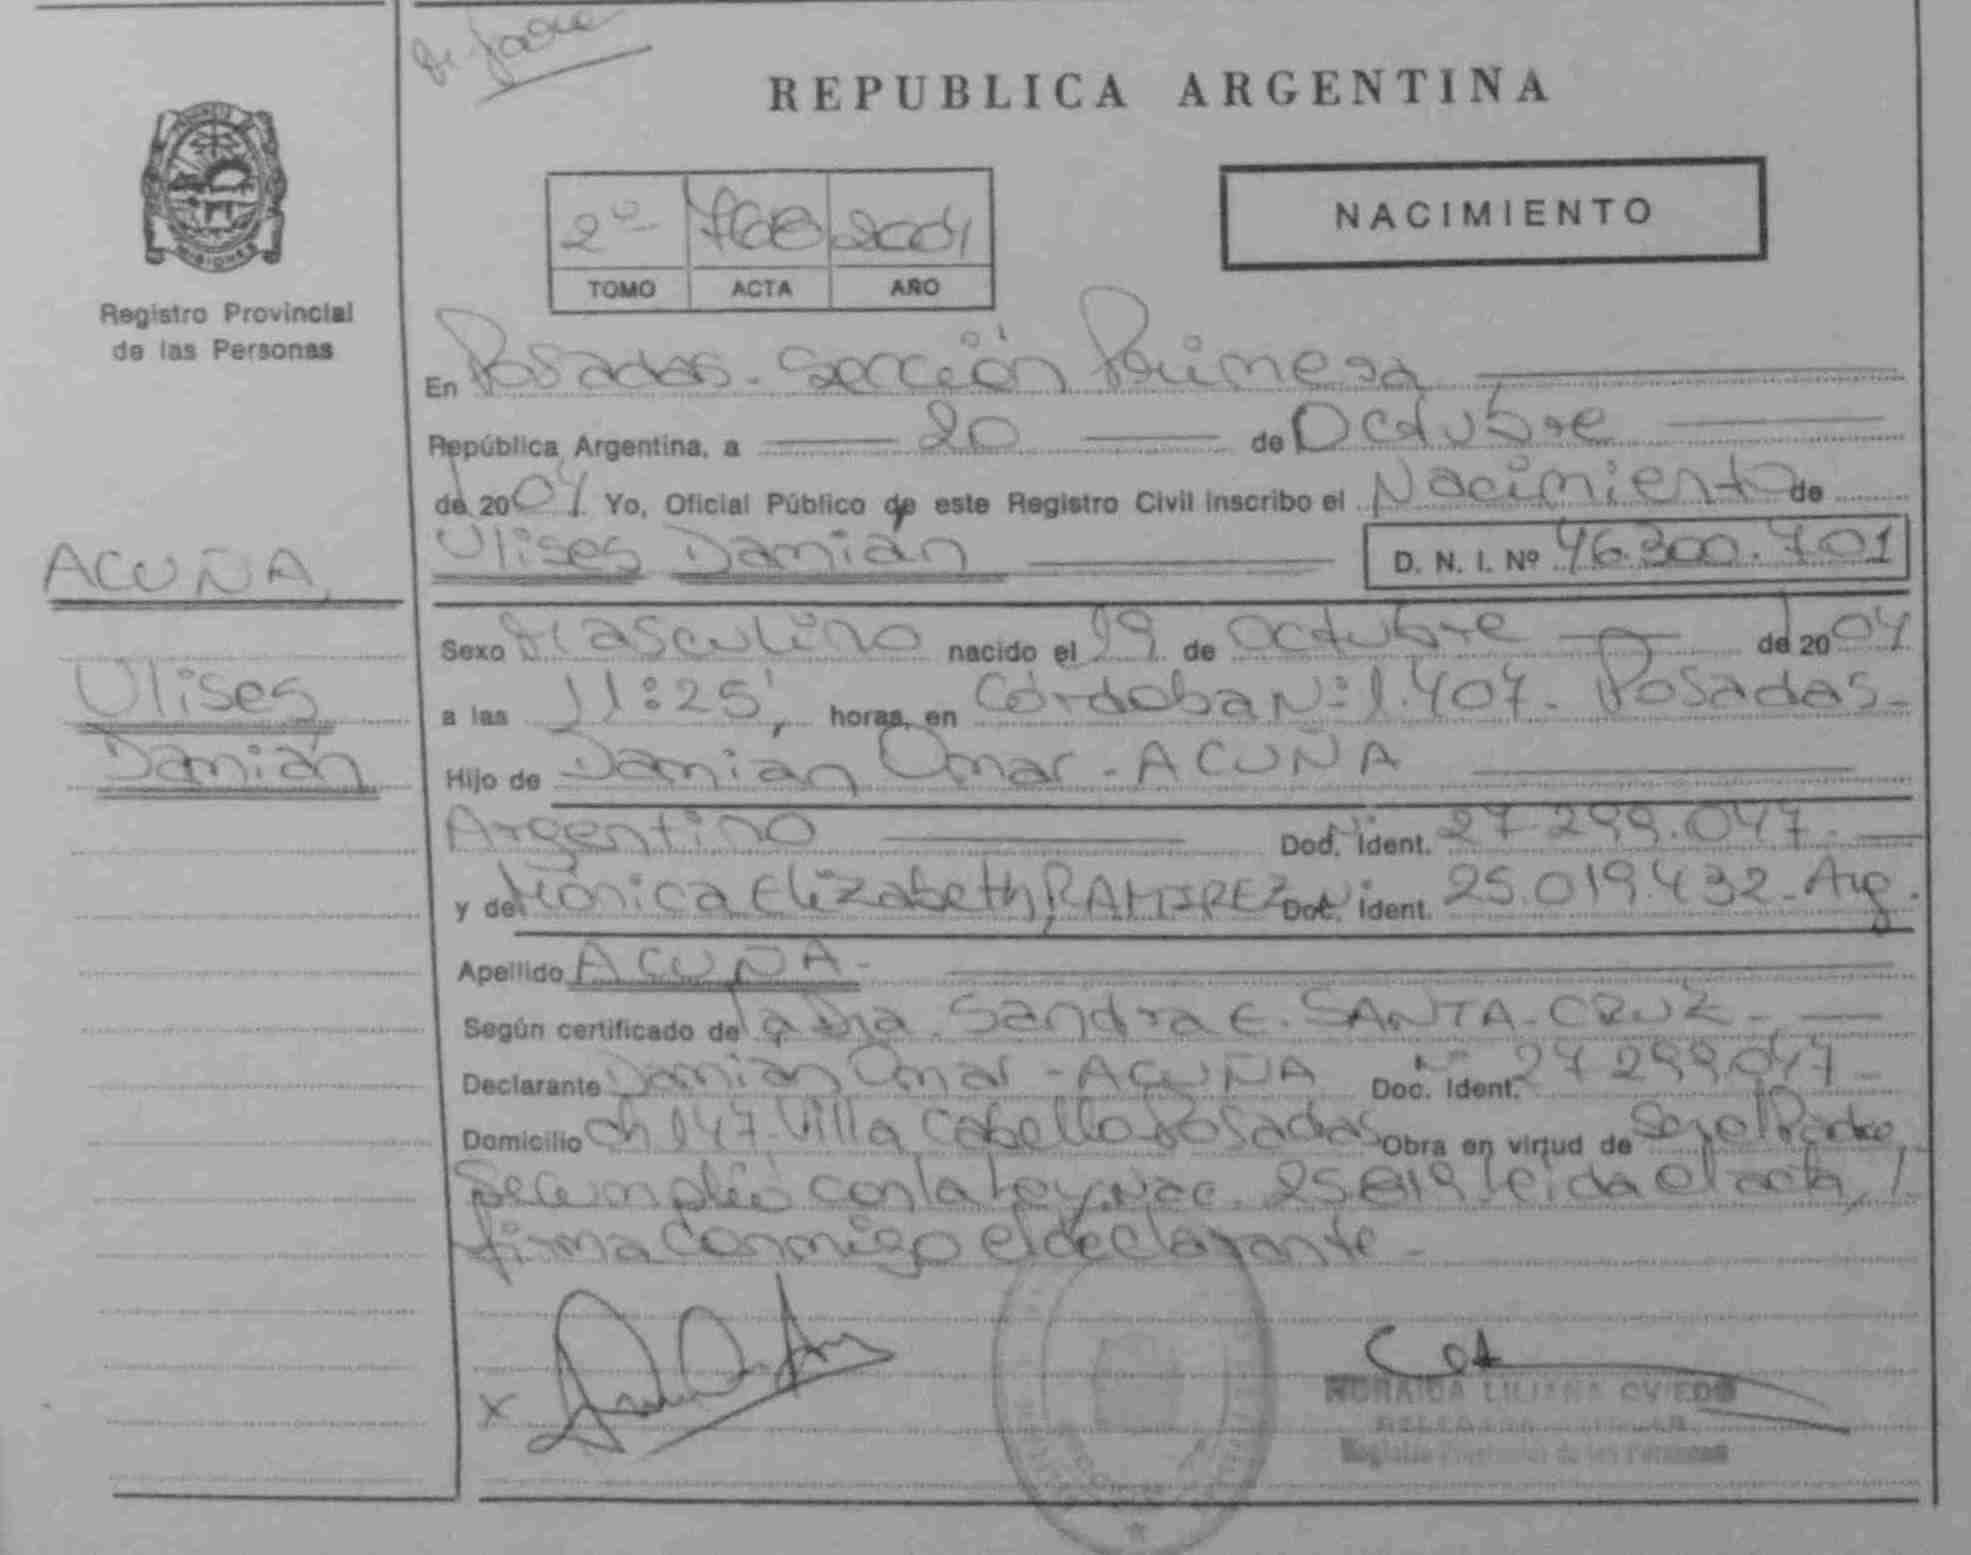 REPUBLICA ARGENTINA
MISIONES
Registro Provincial
de las Personas
NACIMIENTO
2º 768 2004
TOMO ACTA AÑO
En Posadas - Sección Primera
República Argentina, a 20 de Octubre
de 2004 Yo, Oficial Público de este Registro Civil inscribo el Nacimiento de
Ulises Damián D. N. I. Nº 46.300.701
ACUÑA,
Ulises
Damián
Sexo Masculino nacido el 19 de Octubre de 2004
a las 11:25, horas, en Córdoba Nº 1.407 - Posadas -
Hijo de Damian Omar - ACUÑA
Argentino Doc. Ident. Nº 27.299.047 -
y de Mónica Elizabeth RAMIREZ Doc. Ident. Nº 25.019.432 - Arg.
Apellido ACUÑA -
Según certificado de la Dra. Sandra E. SANTA-CRUZ -
Declarante Damian Omar - ACUÑA Doc. Ident. Nº 27.299.047 -
Domicilio Ch 147 - Villa Cabello - Posadas Obra en virtud de Ser el Padre
Se cumplió con la Ley Nac. 25819 leida el acta,
firma conmigo el declarante -
LILIANA OVIEDO
Registro Provincial de las Personas